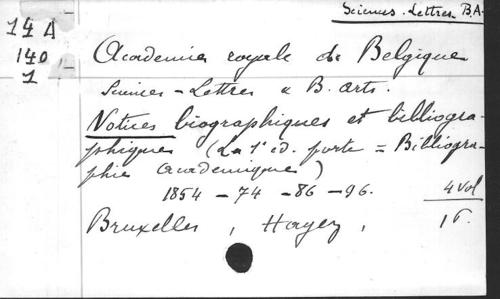 Sciences. Lettres. B.A.
14 A
140
1
Academie royale de Belgique
Sciences - Lettres & B. arts.
Notices biographiques et bibliogra-
phiques (La 1e éd. porte = Bibliogra-
phie académique)
1854 - 74 - 86 - 96.
4 vol
Bruxelles, Hayez,